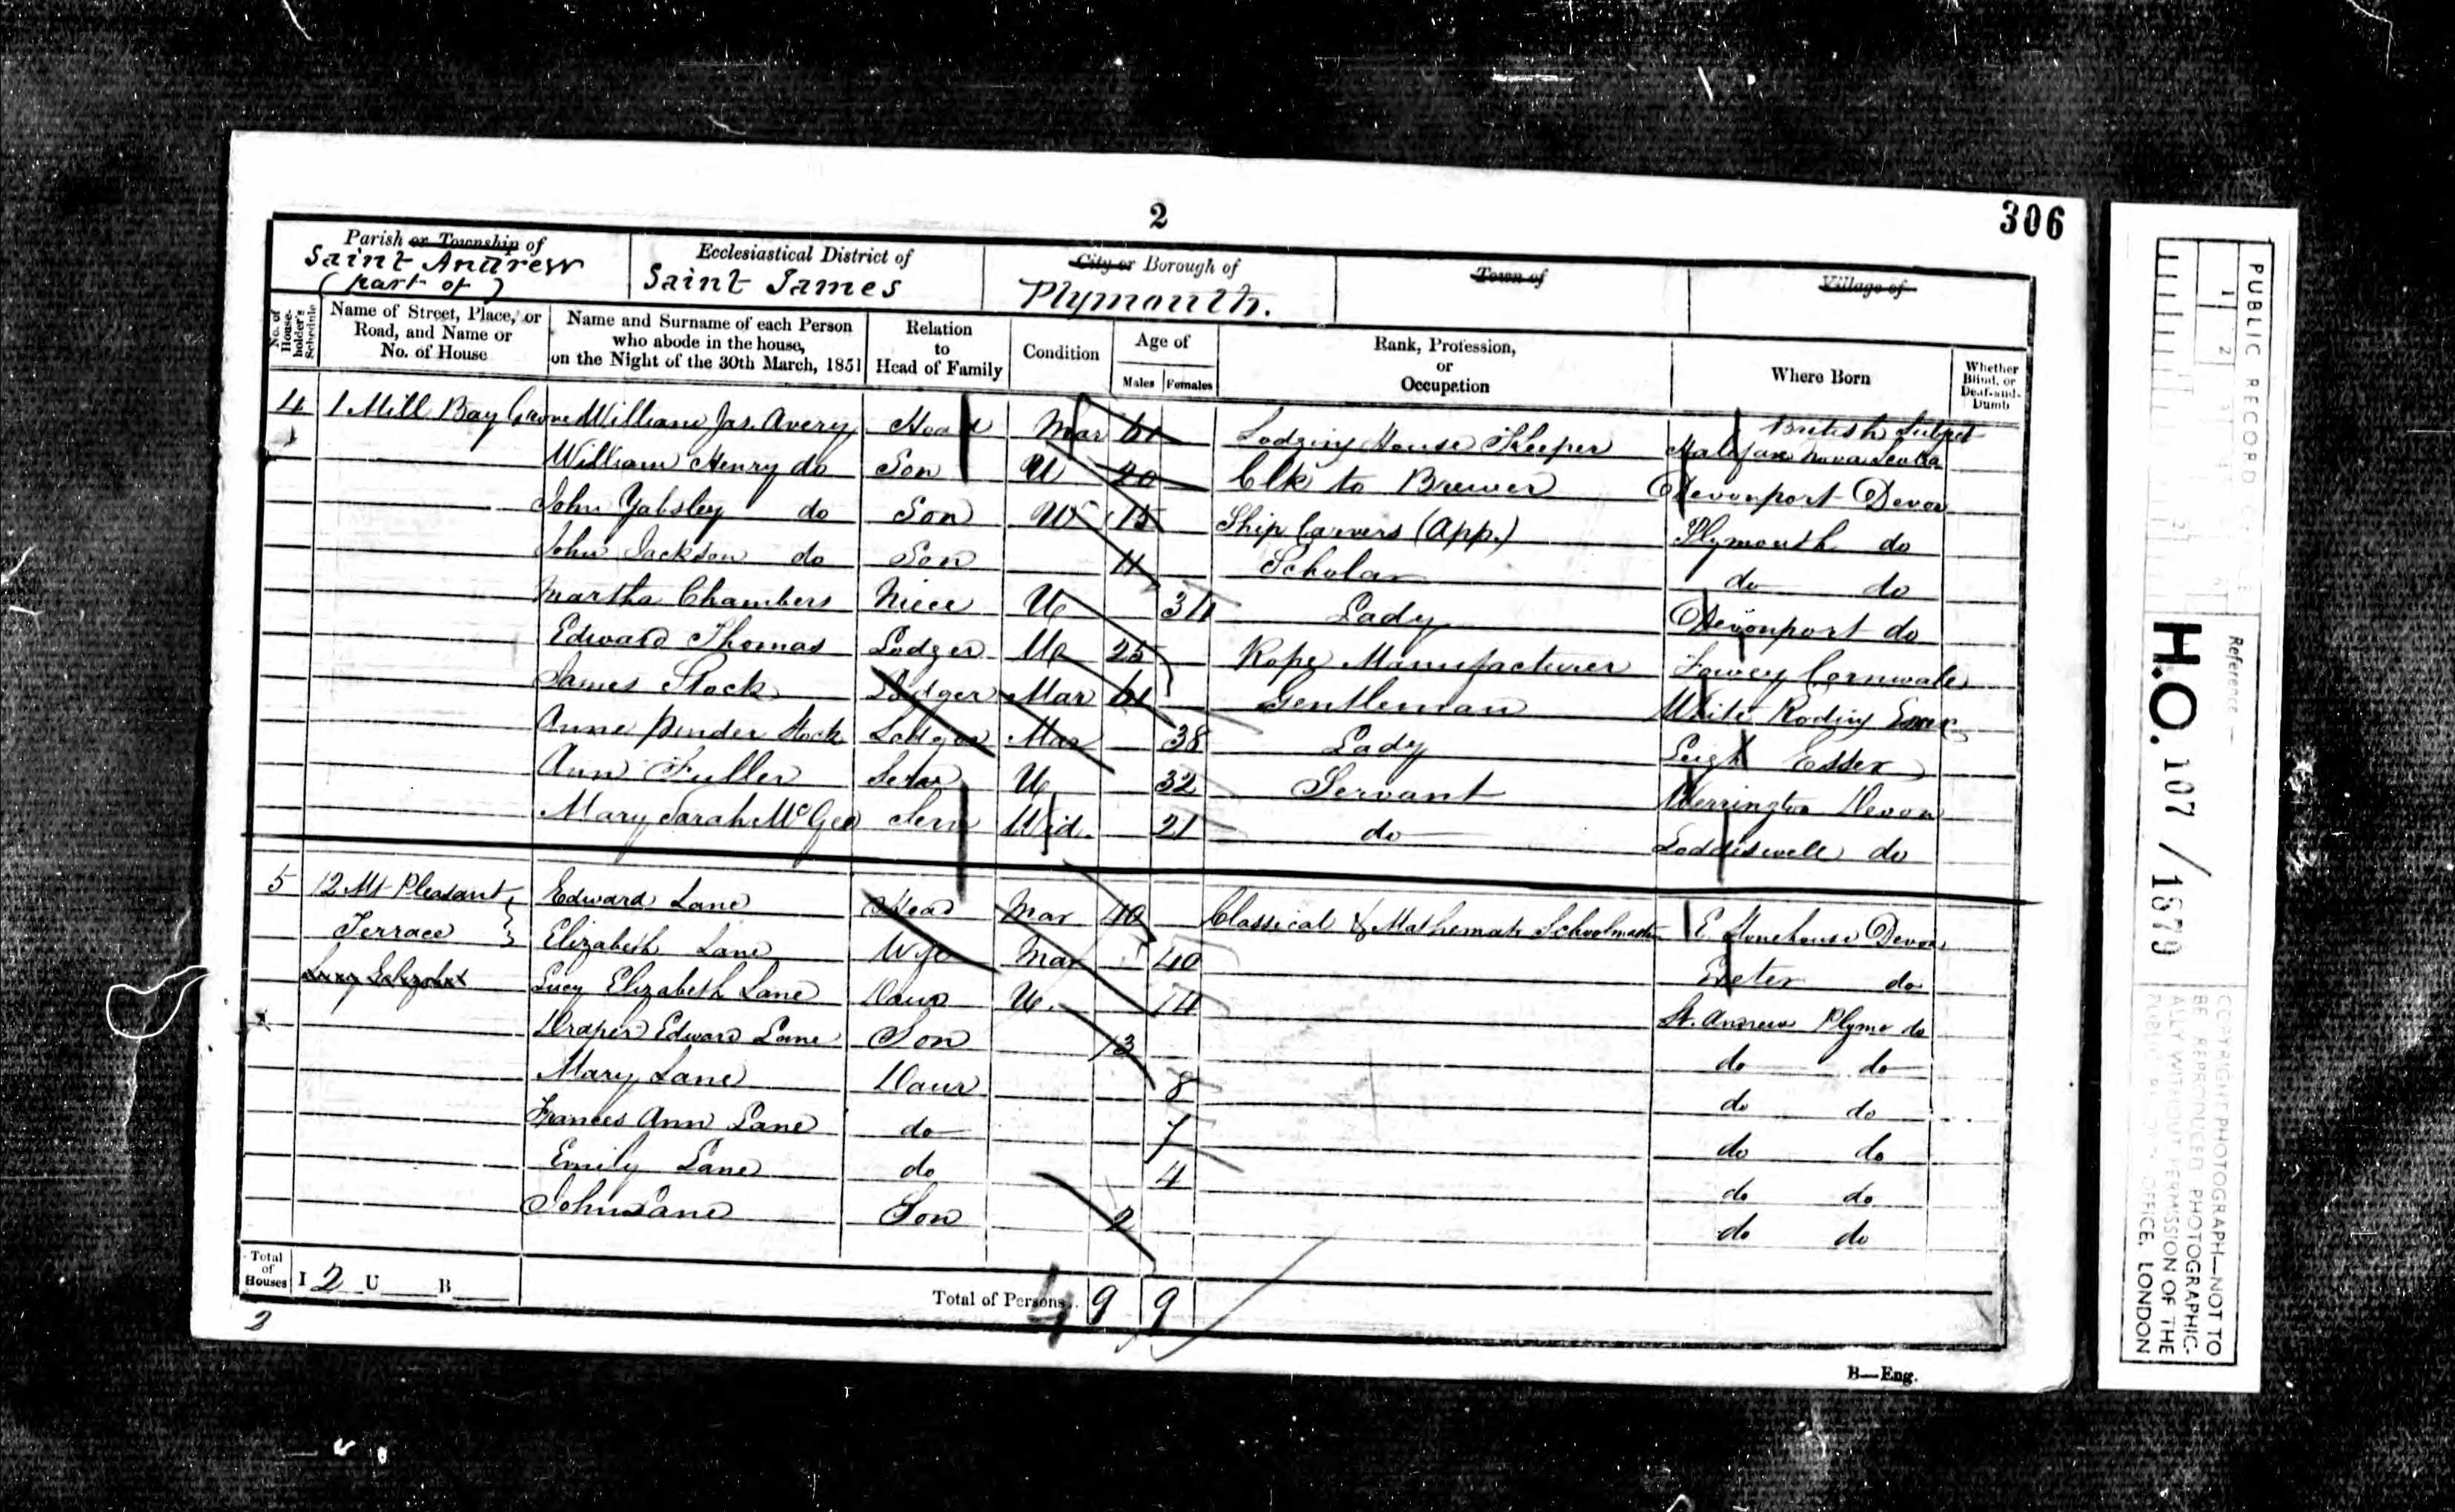 2
306
Parish or Township of
Saint Andrew
(part of)
Ecclesiastical District of
Saint James
City or Borough of
Plymouth.
Town of
Village of
No. of House-holder's Schedule
Name of Street, Place, or Road, and Name or No. of House
Name and Surname of each Person who abode in the house, on the Night of the 30th March, 1851
Relation to Head of Family
Condition
Age of
Males Females
Rank, Profession, or Occupation
Where Born
Whether Blind, or Deaf-and-Dumb
British Subject
4 1 Mill Bay Grove William Jas. Avery Head Mar 61 Lodging House Keeper Halifax Nova Scotia
William Henry do Son U 20 Clk to Brewer Devonport Devon
John Yabsley do Son U 15 Ship Carvers (App.) Plymouth do
John Jackson do Son 11 Scholar do do
Martha Chambers Niece U 34 Lady Devonport do
Edward Thomas Lodger U 25 Rope Manufacturer Fowey Cornwall
James Stock Lodger Mar 61 Gentleman White Roding Essex
Anne Pinder Stock Lodger Mar 38 Lady Leigh Essex
Ann Fuller Serv U 32 Servant Werrington Devon
Mary Sarah McGeo Serv Wid. 21 do Loddiswell do
5 12 Mt Pleasant Edward Lane Head Mar 40 Classical & Mathemat Schoolmaster E. Stonehouse Devon
Terrace Elizabeth Lane Wife Mar 40 Exeter do
Lucy Elizabeth Lucy Elizabeth Lane Daur U. 14 St. Andrew Plymo do
Draper Edward Lane Son 13 do do
Mary Lane Daur 8 do do
Frances Ann Lane do 7 do do
Emily Lane do 4 do do
John Lane Son 2 do do
Total of Houses I 2 U B
Total of Persons.. 9 9
4
2
B—Eng.
PUBLIC RECORD OFFICE
1 2
Reference —
H.O. 107 / 1879
COPYRIGHT PHOTOGRAPH—NOT TO
BE REPRODUCED PHOTOGRAPHIC-
ALLY WITHOUT PERMISSION OF THE
PUBLIC RECORD OFFICE, LONDON